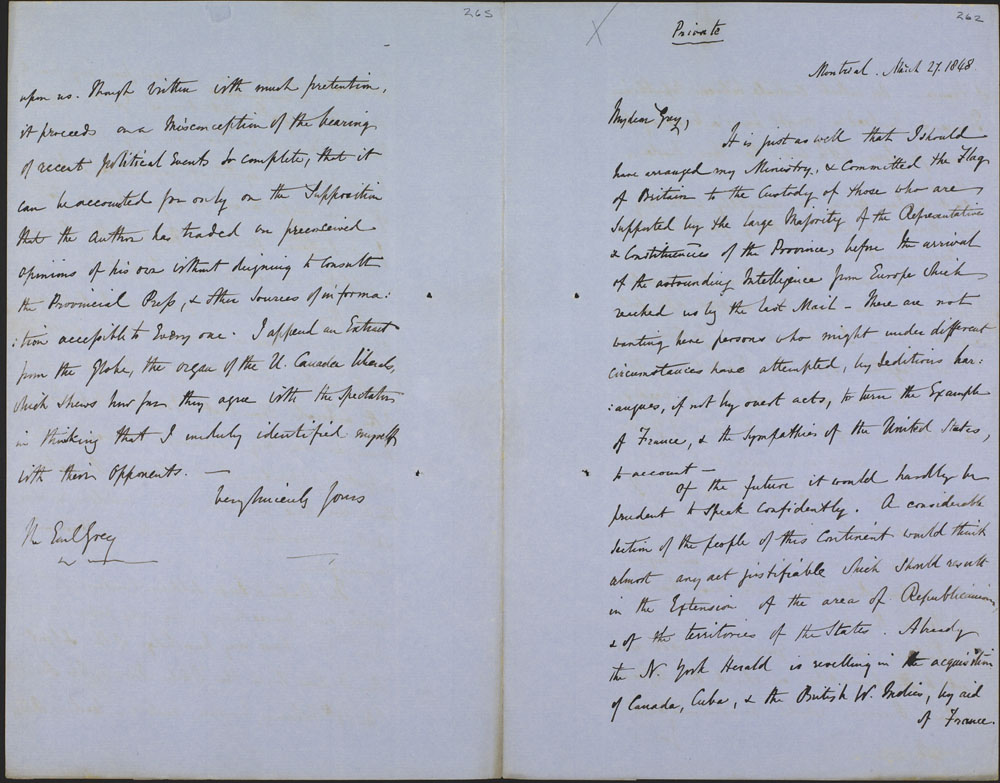 265
upon us. Though written with much pretention,
it proceeds on a Misconception of the bearing
of recent political Events so complete, that it
can be accounted for only on the Supposition
that the Author has traded on preconceived
opinions of his own without deigning to consult
the Provincial Press, & other Sources of informa:
:tion accessible to Every one. I append an Extract
from the Globe, the organ of the U. Canada liberals,
which shews how far they agree with the Spectator
in thinking that I unduly identified myself
with their Opponents. —
Very Sincerely Yours
The Earl Grey
262
Private
Montreal. March 27. 1848.
My dear Grey,
It is just as well that I should
have arranged my Ministry, & Committed the Flag
of Britain to the Custody of those who are
supported by the large Majority of the Representatives
& Constituencies of the Province, before the arrival
of the astounding Intelligence from Europe which
reached us by the last Mail – There are not
wanting here persons who might under different
circumstances have attempted, by seditious har:
:angues, if not by overt acts, to turn the Example
of France, & the Sympathies of the United States,
to account –
Of the future it would hardly be
prudent to speak confidently. A considerable
section of the people of this Continent would think
almost any act justifiable which should result
in the Extension of the area of Republicanism
& of the territories of the States. Already
the N. York Herald is revelling in the acquisition
of Canada, Cuba, & the British W. Indies, by aid
of France.